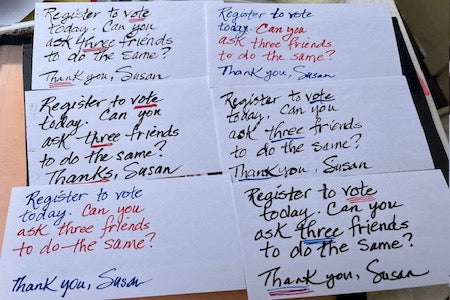 Register to vote
today. Can you
ask three friends
to do the same?
Thank you, Susan
Register to vote
today. Can you
ask three friends
to do the same?
Thank you, Susan
Register to vote
today. Can you
ask three friends
to do the same?
Thanks, Susan
Register to vote
today. Can you
ask three friends
to do the same?
Thank you, Susan
Register to vote
today. Can you
ask three friends
to do the same?
Thank you, Susan
Register to vote
today. Can you
ask three friends
to do the same?
Thank you, Susan